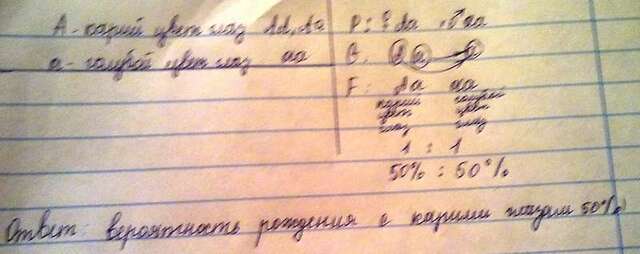 А - карий цвет глаз АА, Аа
а - голубой цвет глаз аа
Р: ♀ Аа , ♂ аа
G: А а а
F: Аа аа
карий голубой
цвет цвет
глаз глаз
1 : 1
50% : 50%
Ответ: вероятность рождения с карими глазами 50%